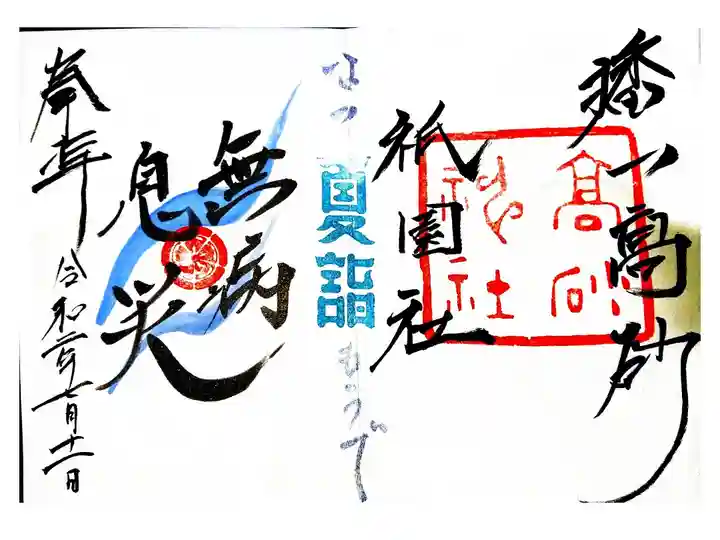 播一高砂
高砂
神社
祇園社
なつ
夏詣
もうで
無病
息災
奉拝
令和二年七月十一日